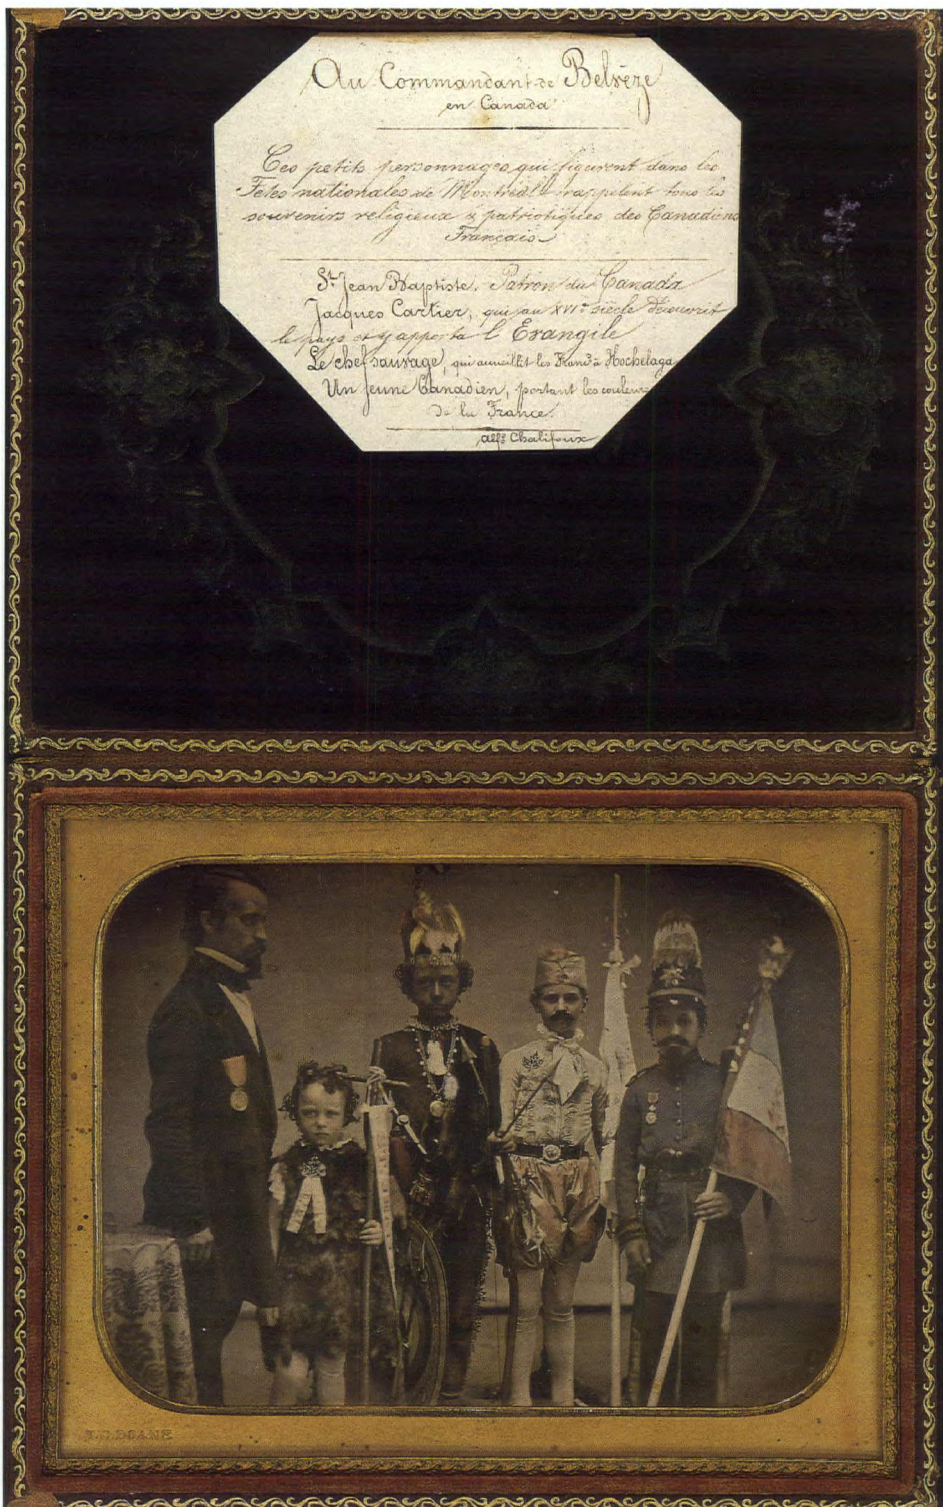 Au Commandant de Belvèze
en Canada
Ces petits personnages qui figurent dans les
Fêtes nationales de Montréal rappelent tous les
souvenirs religieux & patriotiques des Canadiens
Français
St Jean Baptiste, Patron du Canada
Jacques Cartier, qui au XVIe siècle découvrit
le pays et y apporta l'Evangile
Le chef sauvage, qui accueillit les Franc. à Hochelaga
Un jeune Canadien, portant les couleurs
de la France.
Alfd Chalifoux
T.C. DOANE